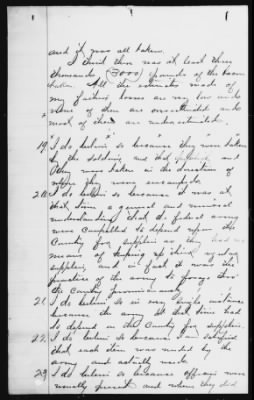 and it was all taken.
I think there was at least three
thousand (3000) pounds of the bacon
taken. All the estimates made of
my father's losses are very low and
none of them are overestimated and
most of them are underestimated.
19 I do believe so because they were taken
by the soldiers, and that and
they were taken in the direction of
where they were encamped.
20 I do believe so because it was at
that time a general and universal
understanding that the federal army
were compelled to depend upon the
Country for supplies as they had no
means of keeping up their
supplies, and in fact it was the
practice of the army to forage thro'
the Country promiscuously.
21. I do believe so in every single instance
because the army at that time had
to depend on the Country for supplies.
22. I do believe so because I am satisfied
that each item was needed by the
army and actually used.
23 I do believe so because officers were
usually present and when they did